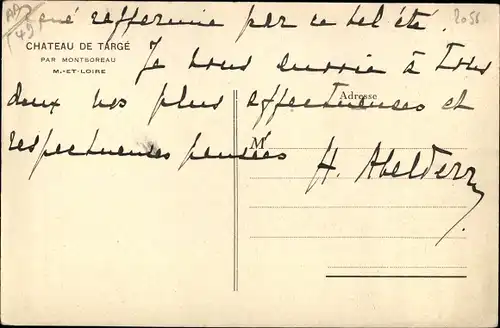 AA
49
santé raffermie par ce bel été.
2056
CHATEAU DE TARGÉ
PAR MONTSOREAU
M.-ET-LOIRE
Je vous envoie à tous
deux mes plus affectueuses et
Adresse
respectueuses pensées
M